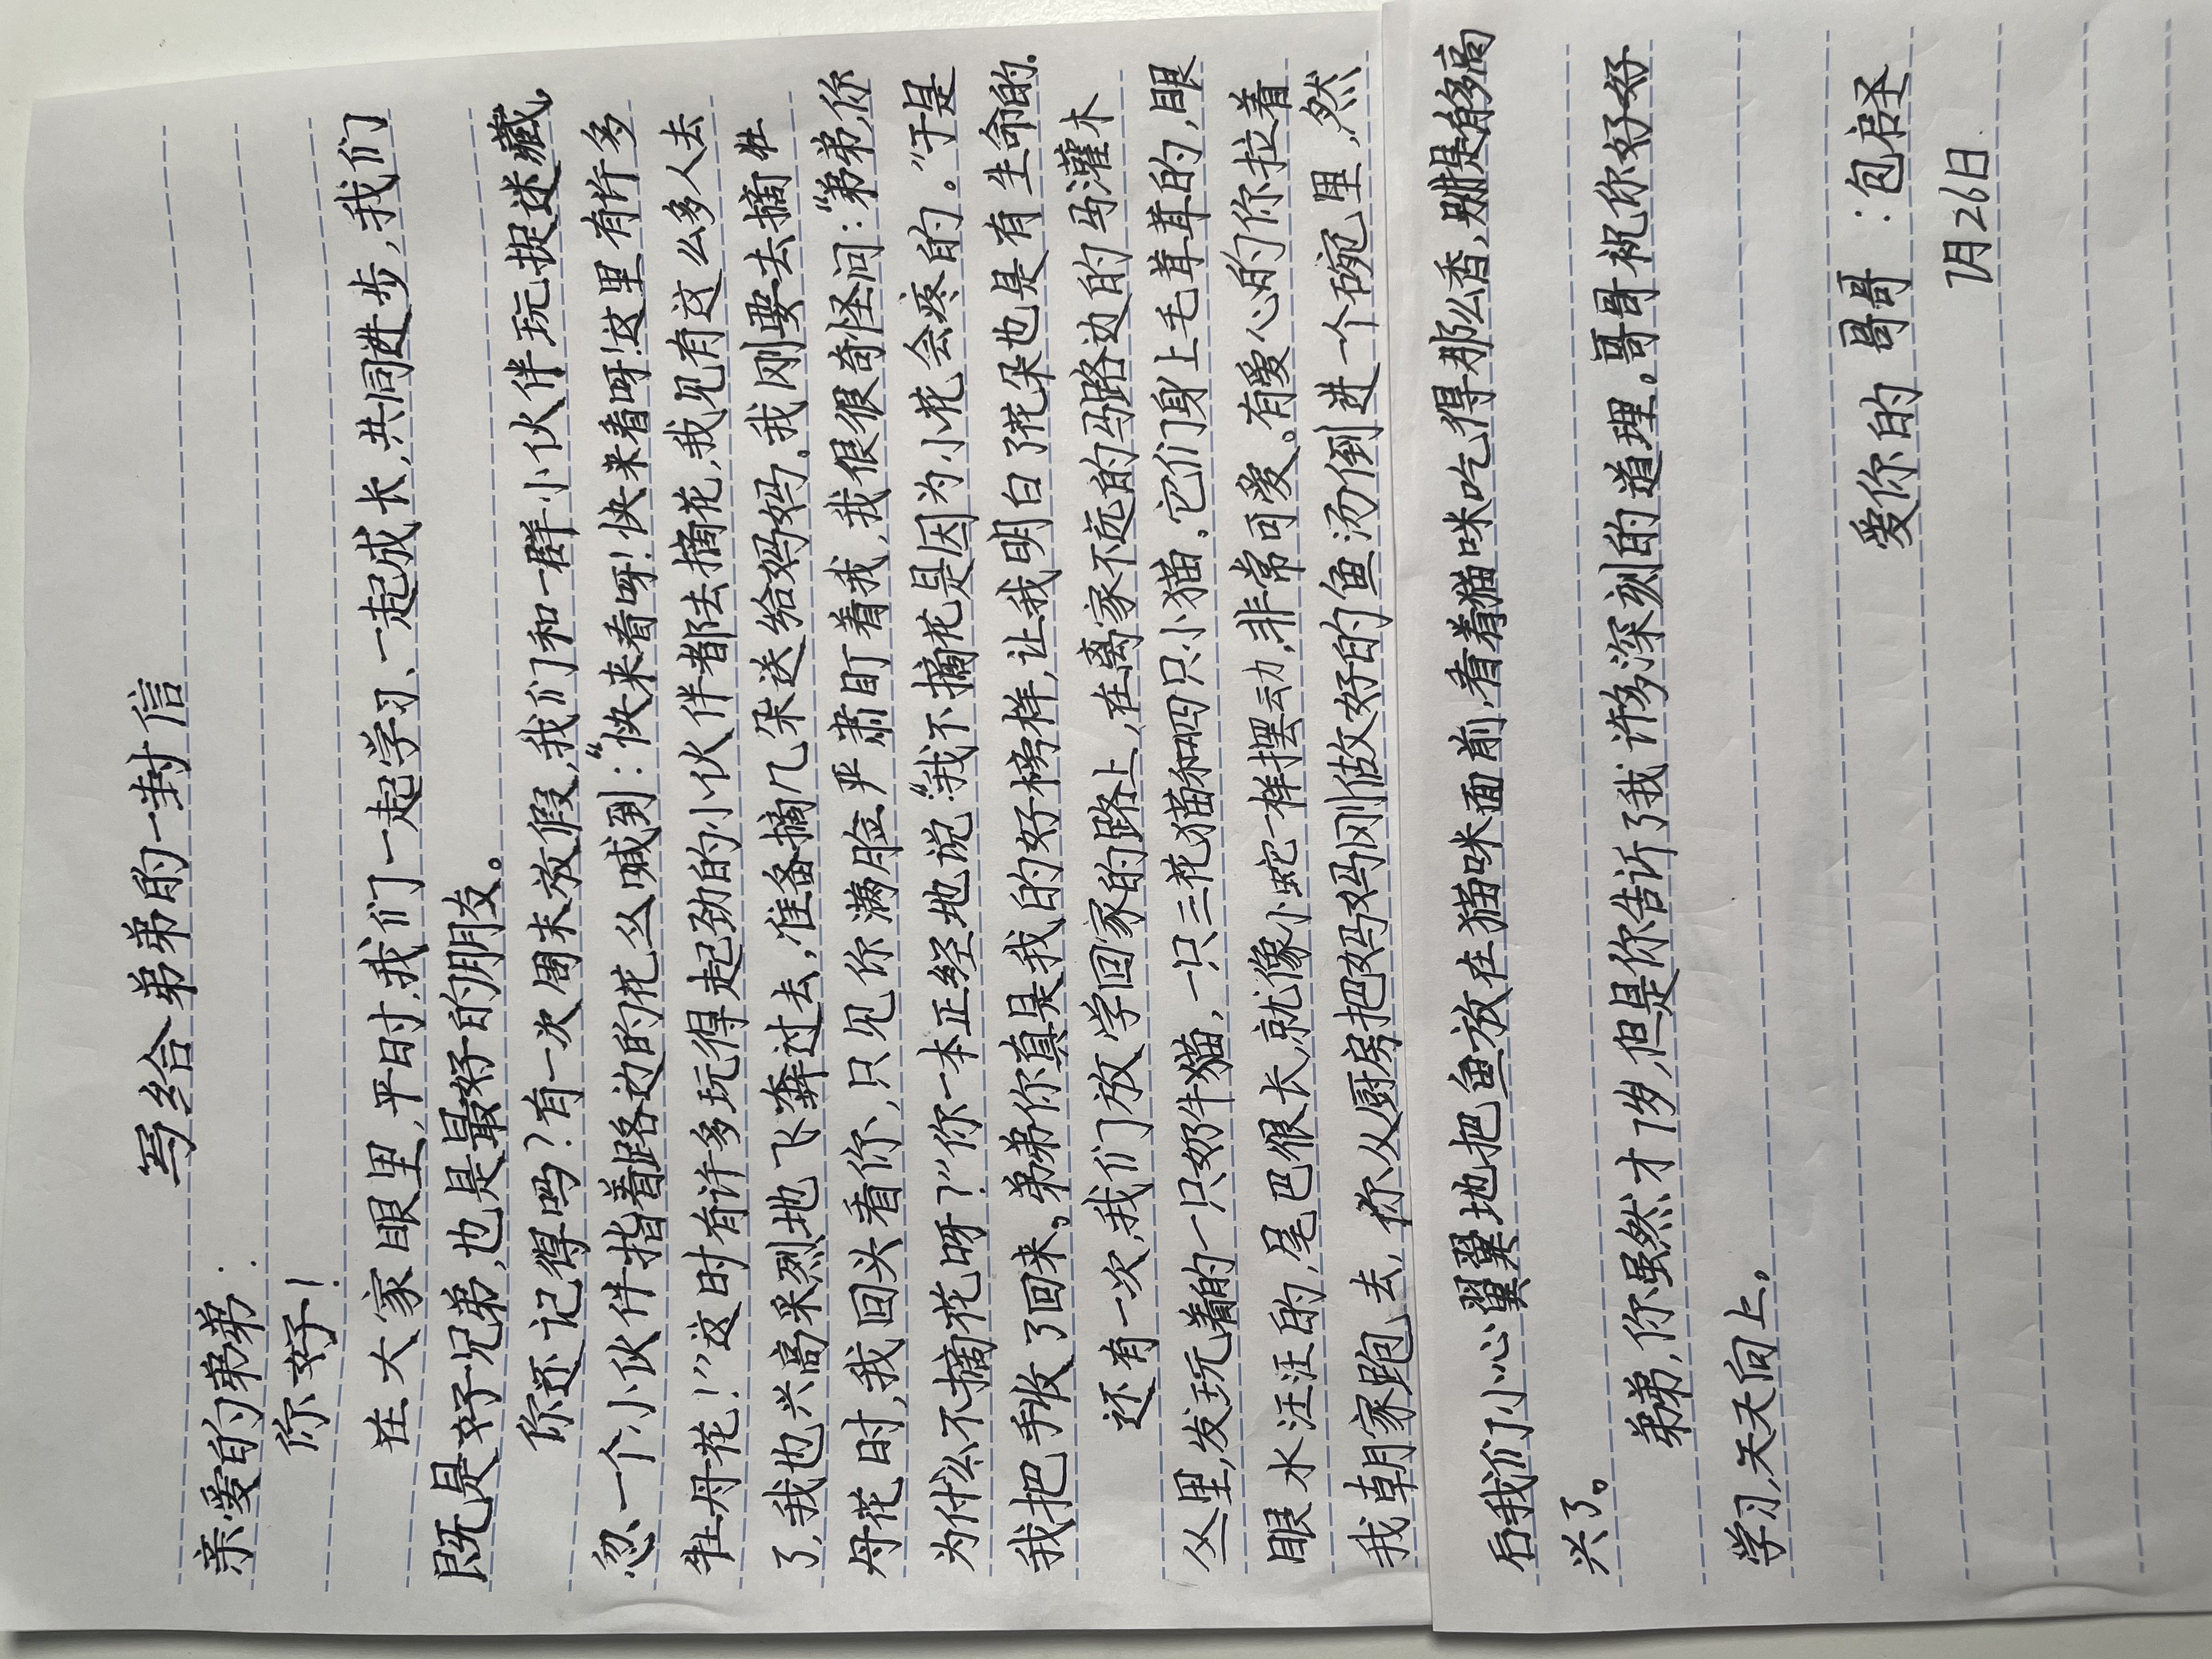 写给弟弟的一封信
亲爱的弟弟：
你好！
在大家眼里，平时，我们一起学习、一起成长，共同进步，我们
既是好兄弟，也是最好的朋友。
你还记得吗？有一次周末放假，我们和一群小伙伴玩捉迷藏，
忽一个小伙伴指着路边的花丛喊到：“快来看呀！快来看呀！这里有许多
牡丹花！”这时有许多玩得起劲的小伙伴都去摘花，我见有这么多人去
了，我也兴高采烈地飞奔过去，准备摘几朵送给妈妈。我刚要去摘牡
丹花时，我回头看你，只见你满脸严肃盯着我，我很很奇怪问：“弟弟，你
为什么不摘花呀？”你一本正经地说“我不摘花是因为小花会疼的。”于是
我把手收了回来。弟弟你真是我的好榜样，让我明白了花朵也是有生命的.
还有一次，我们放学回家的路上，在离家不远的马路边的马灌木
丛里，发玩着的一只奶牛猫，一只三花猫和四只小猫，它们身上毛茸茸的，眼
眼水汪汪的，尾巴很长，就像小蛇一样摆动，非常可爱。有爱心的你拉着
我朝家跑去，你从厨房把妈妈刚做好的鱼汤倒进一个碗里，然
后我们小心翼翼地把鱼放在猫咪面前，看着猫咪吃得那么香，别提有多高
兴了。
弟弟，你虽然才7岁，但是你告诉了我许多深刻的道理。哥哥祝你好好
学习，天天向上。
爱你的 哥哥：包启圣
7月26日.